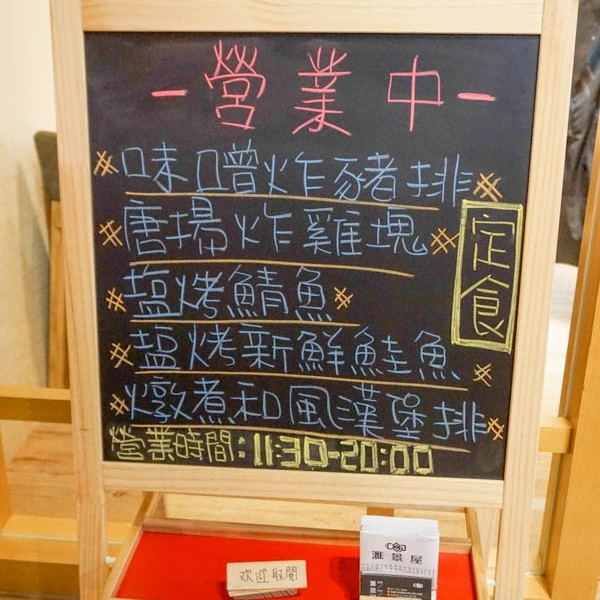 -營業中-
味噌炸豬排
唐場炸雞塊
塩烤鯖魚
塩烤新鮮鮭魚
燉煮和風漢堡排
定食
營業時間:11:30-20:00
歡迎取閱
滙景屋